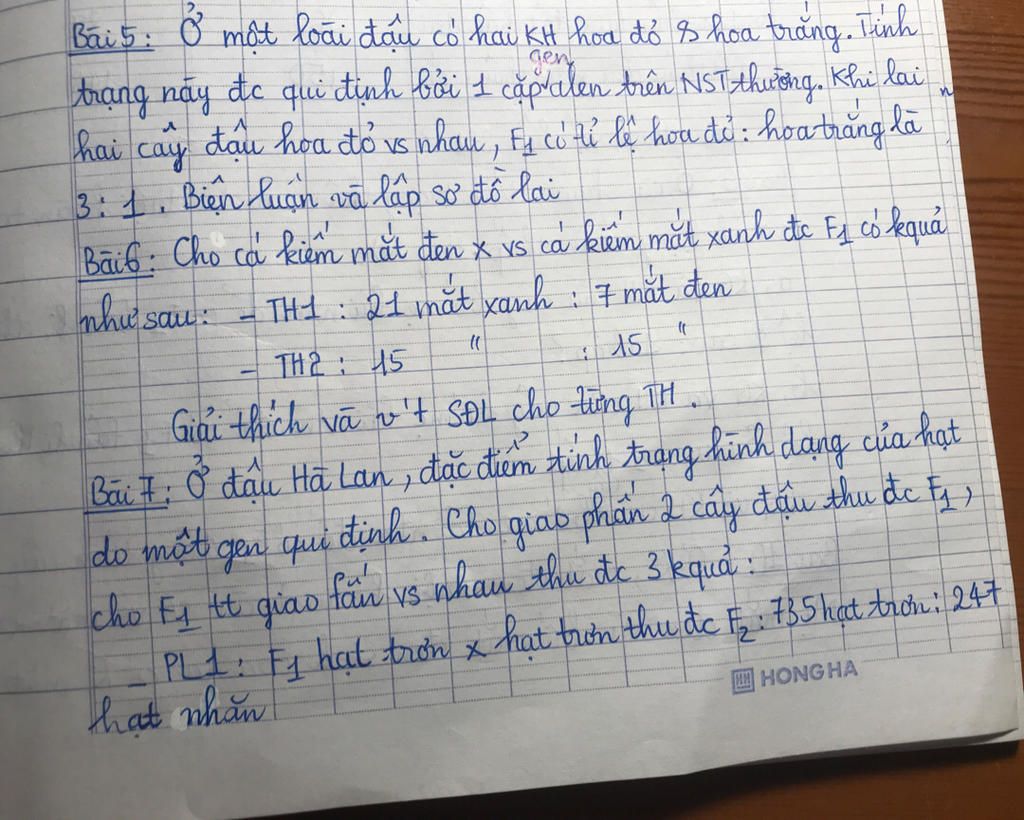 Bài 5: Ở một loài đậu có hai KH hoa đỏ & hoa trắng. Tính
gen
trạng này đc qui định bởi 1 cặp alen trên NST thường. Khi lai
hai cây đậu hoa đỏ vs nhau, F1 có tỉ lệ hoa đỏ: hoa trắng là
3:1. Biện luận và lập sơ đồ lai
Bài 6: Cho cá kiếm mắt đen x vs cá kiếm mắt xanh đc F1 có kquả
như sau: - TH1: 21 mắt xanh : 7 mắt đen
- TH2: 15 " : 15 "
Giải thích và v't SĐL cho từng TH.
Bài 7: Ở đậu Hà Lan, đặc điểm tính trạng hình dạng của hạt
do một gen qui định. Cho giao phấn 2 cây đậu thu đc F1,
cho F1 tt giao fấn vs nhau thu đc 3 kquả:
- PL1: F1 hạt trơn x hạt trơn thu đc F2: 735 hạt trơn: 247
hạt nhăn
HONG HA